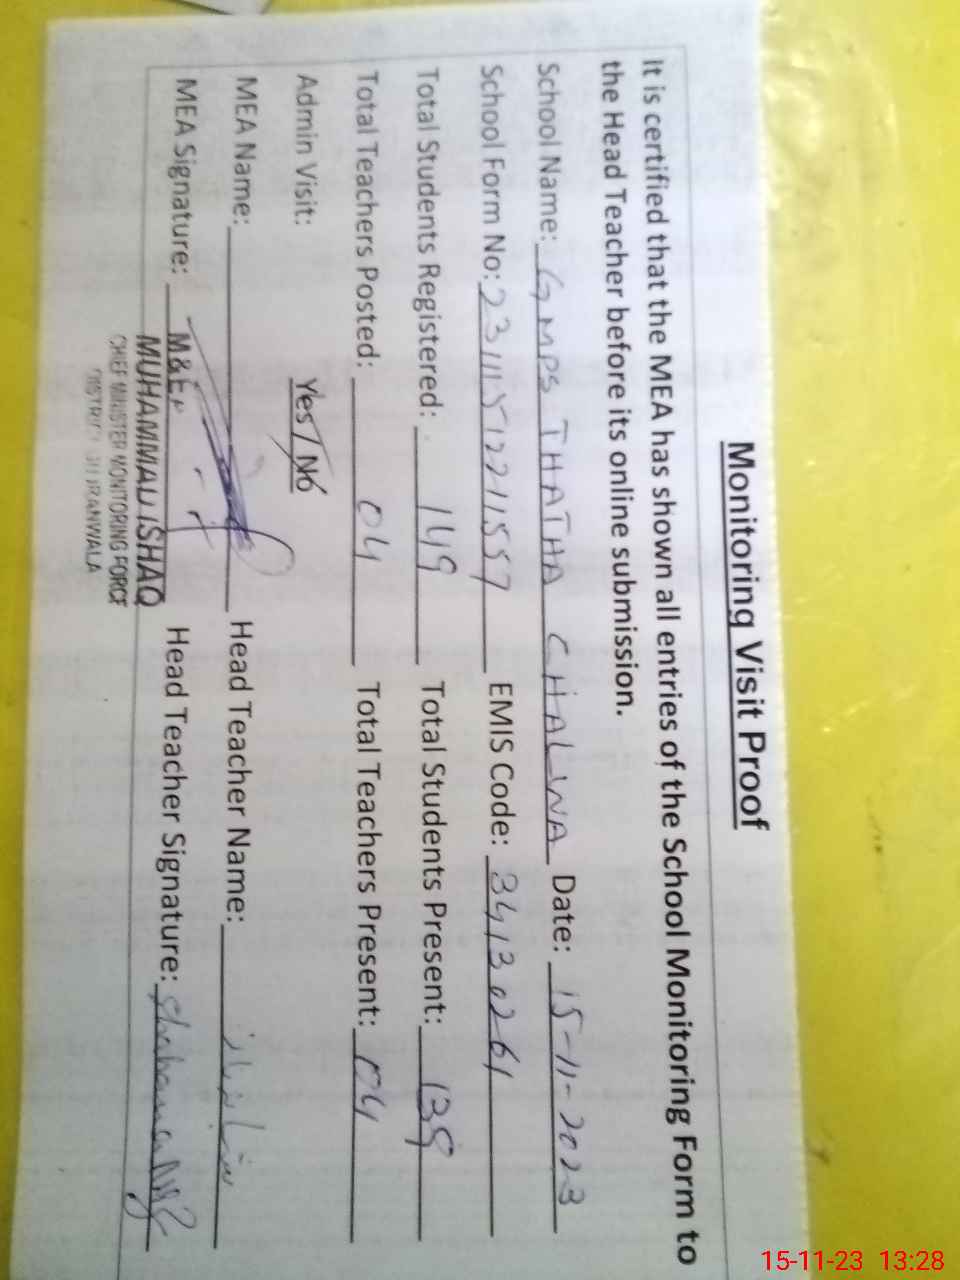 Monitoring Visit Proof
It is certified that the MEA has shown all entries of the School Monitoring Form to
the Head Teacher before its online submission.
School Name: GMPS THATHA GHALWA Date: 15-11-2023
School Form No: EMIS Code: 34130261
Total Students Registered: 149 Total Students Present:
Total Teachers Posted: 04 Total Teachers Present: 04
Admin Visit: Yes / No
MEA Name: Head Teacher Name:
MEA Signature: Head Teacher Signature:
M&E
MUHAMMAD ISHAQ
CHIEF MINISTER MONITORING FORCE
DISTRICT GUJRANWALA
15-11-23 13:28